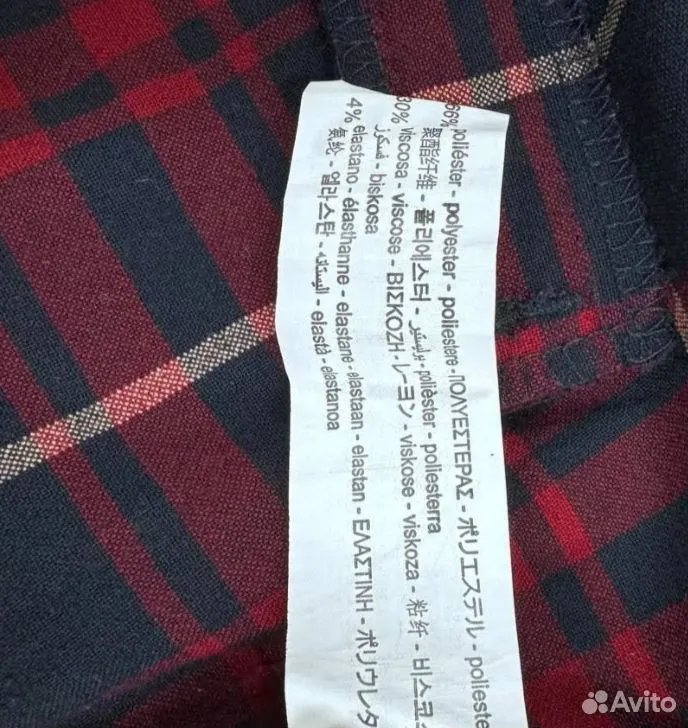 66% poliéster - polyester - poliestere - ΠΟΛΥΕΣΤΕΡΑΣ - ポリエステル - polieste
聚酯纤维 - 폴리에스터 - پولیستر - polièster - poliesterra
30% viscosa - viscose - ΒΙΣΚΟΖΗ - レーヨン - viskose - viskoza - 粘纤 - 비스코
فسكوز - biskosa
4% elastano - élasthanne - elastane - elastaan - elastan - ΕΛΑΣΤΙΝΗ - ポリウレタ
氨纶 - 엘라스탄 - elastà - elastanoa
Avito